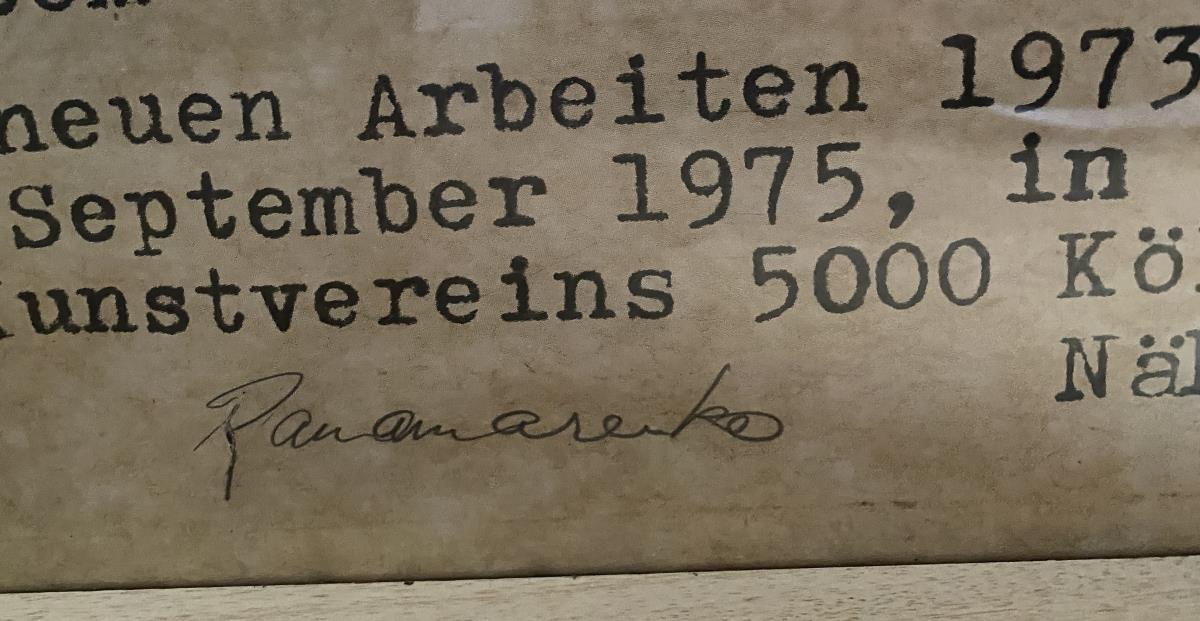 neuen Arbeiten 1973
September 1975, in
unstvereins 5000 Kö
Panamarenko
Nä